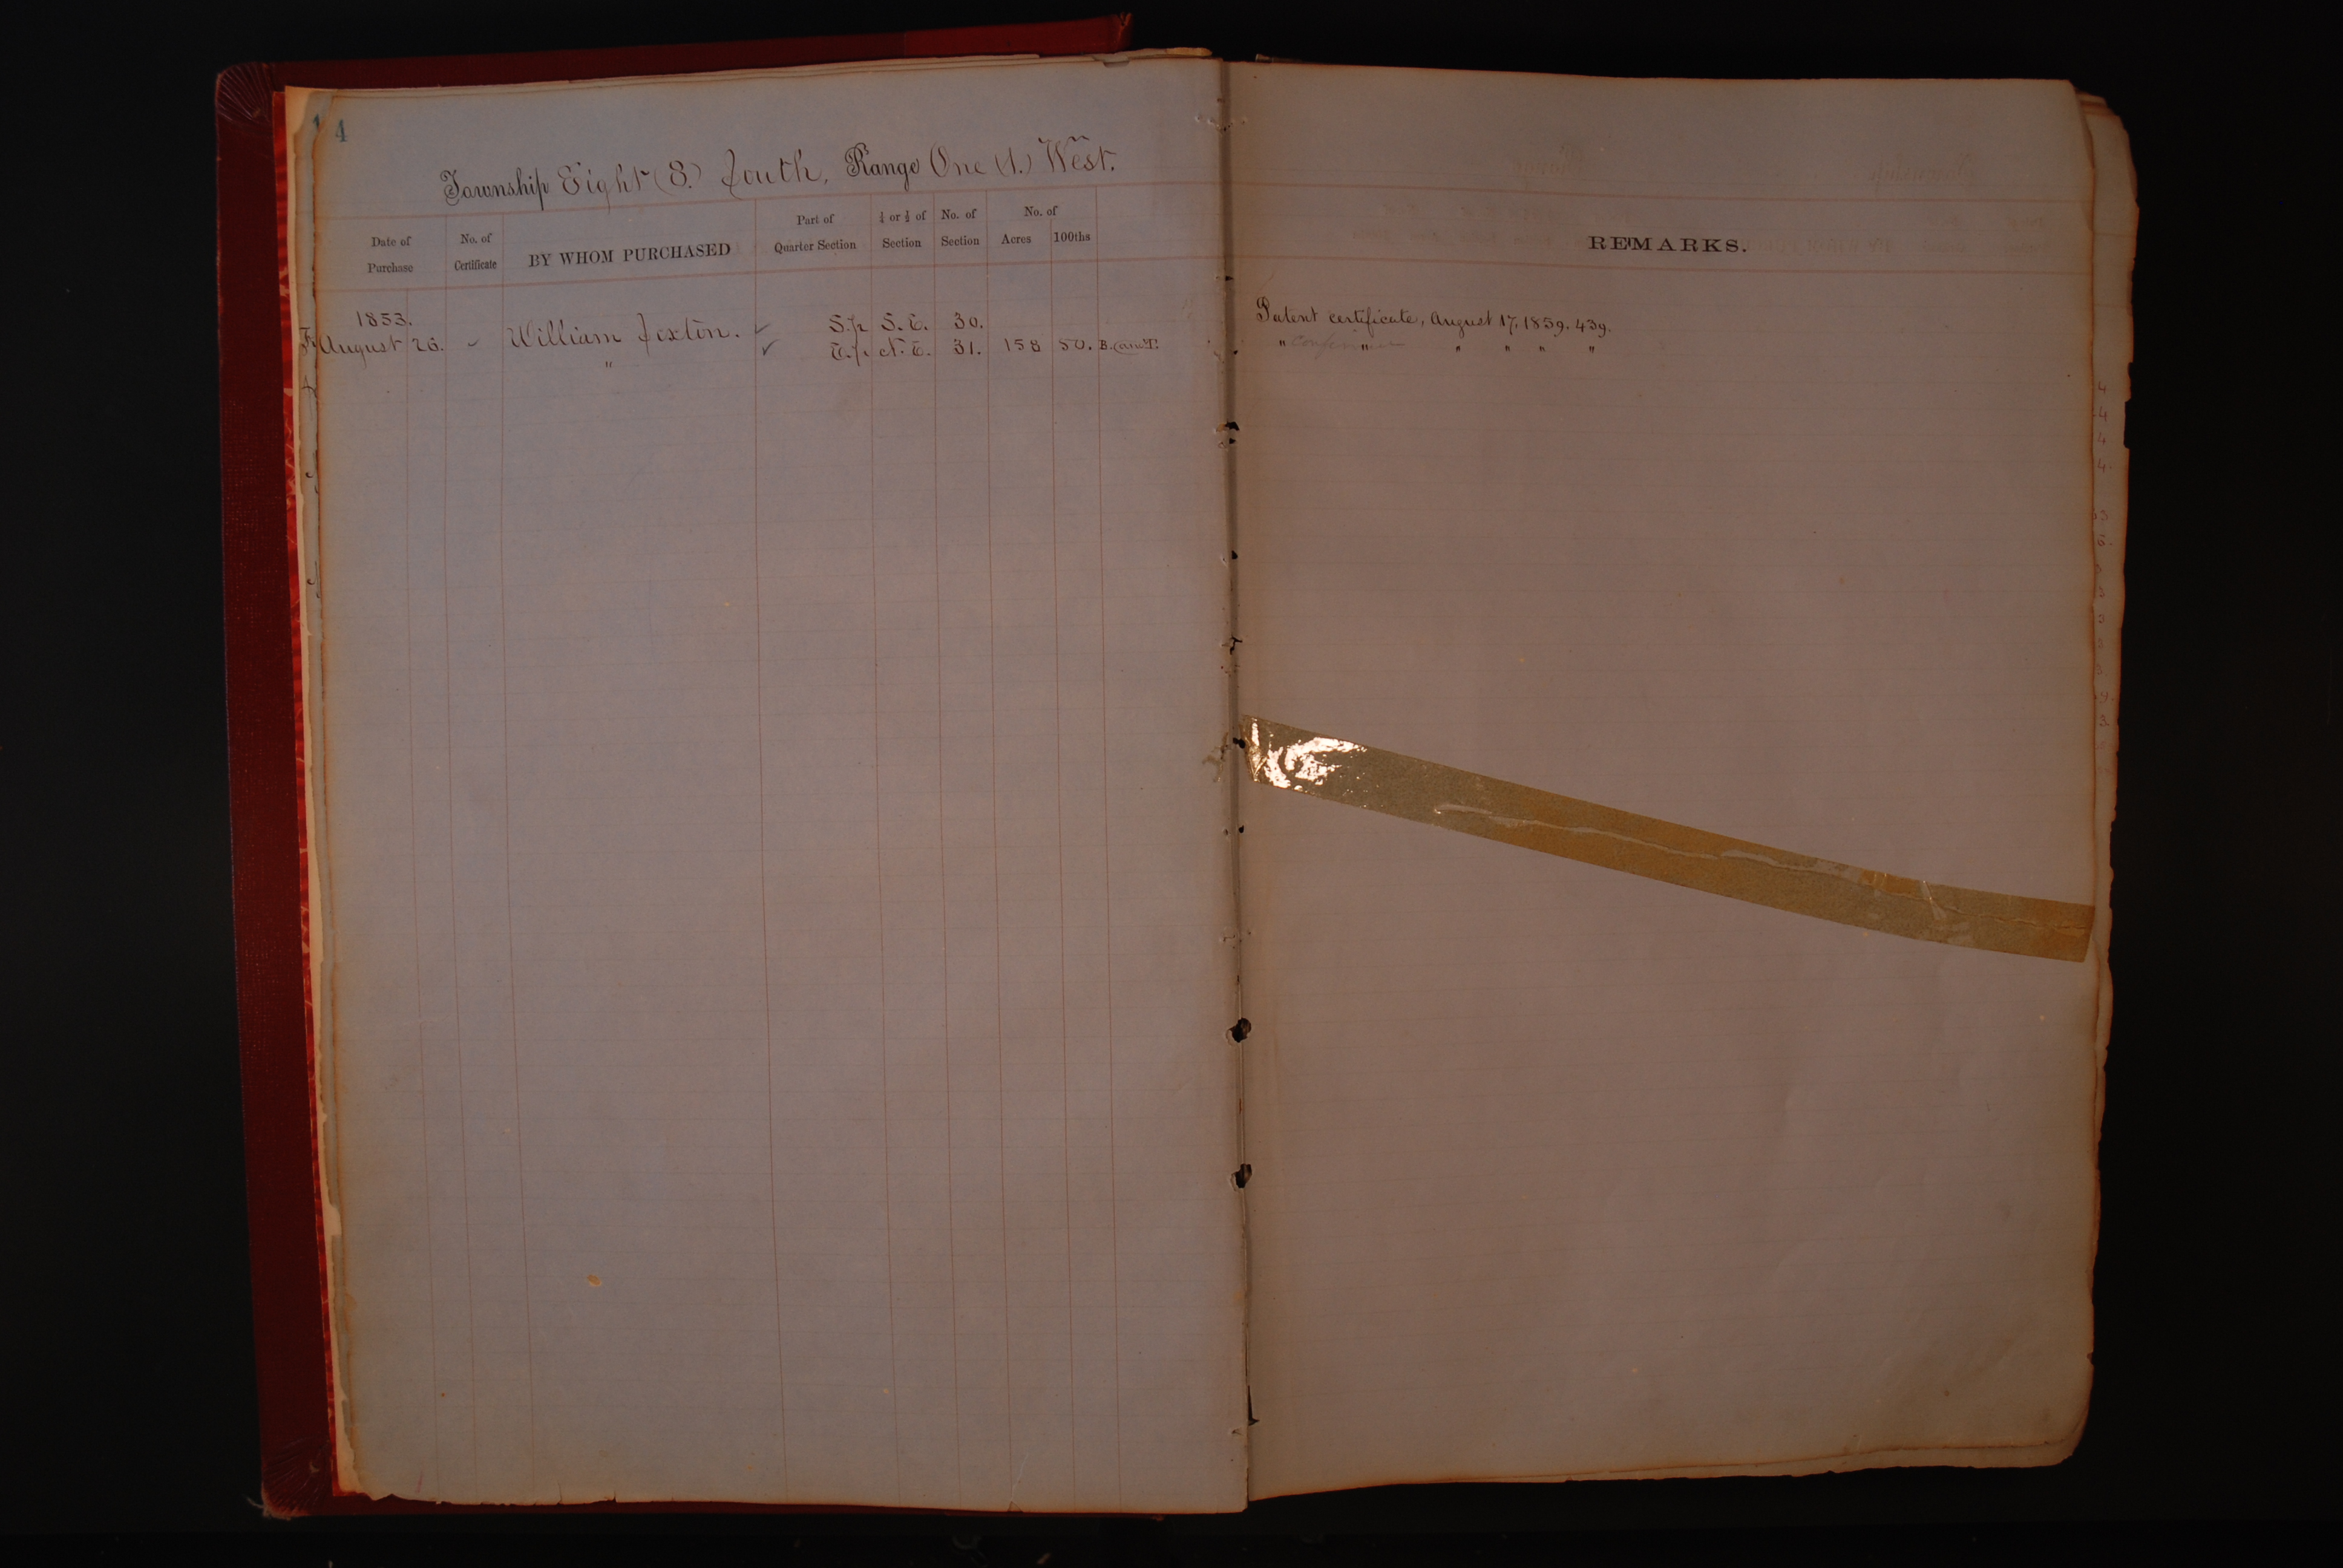 4
Township Eight (8.) South, Range One (1.) West.
Date of Purchase
No. of Certificate
BY WHOM PURCHASED
Part of Quarter Section
¼ or ½ of Section
No. of Section
No. of
Acres
100ths
REMARKS.
1853.
August 26. William Sexton. S.p. S.E. 30. Patent certificate, August 17, 1859. 439.
" E.p. N.E. 31. 158 50. " " " " " "